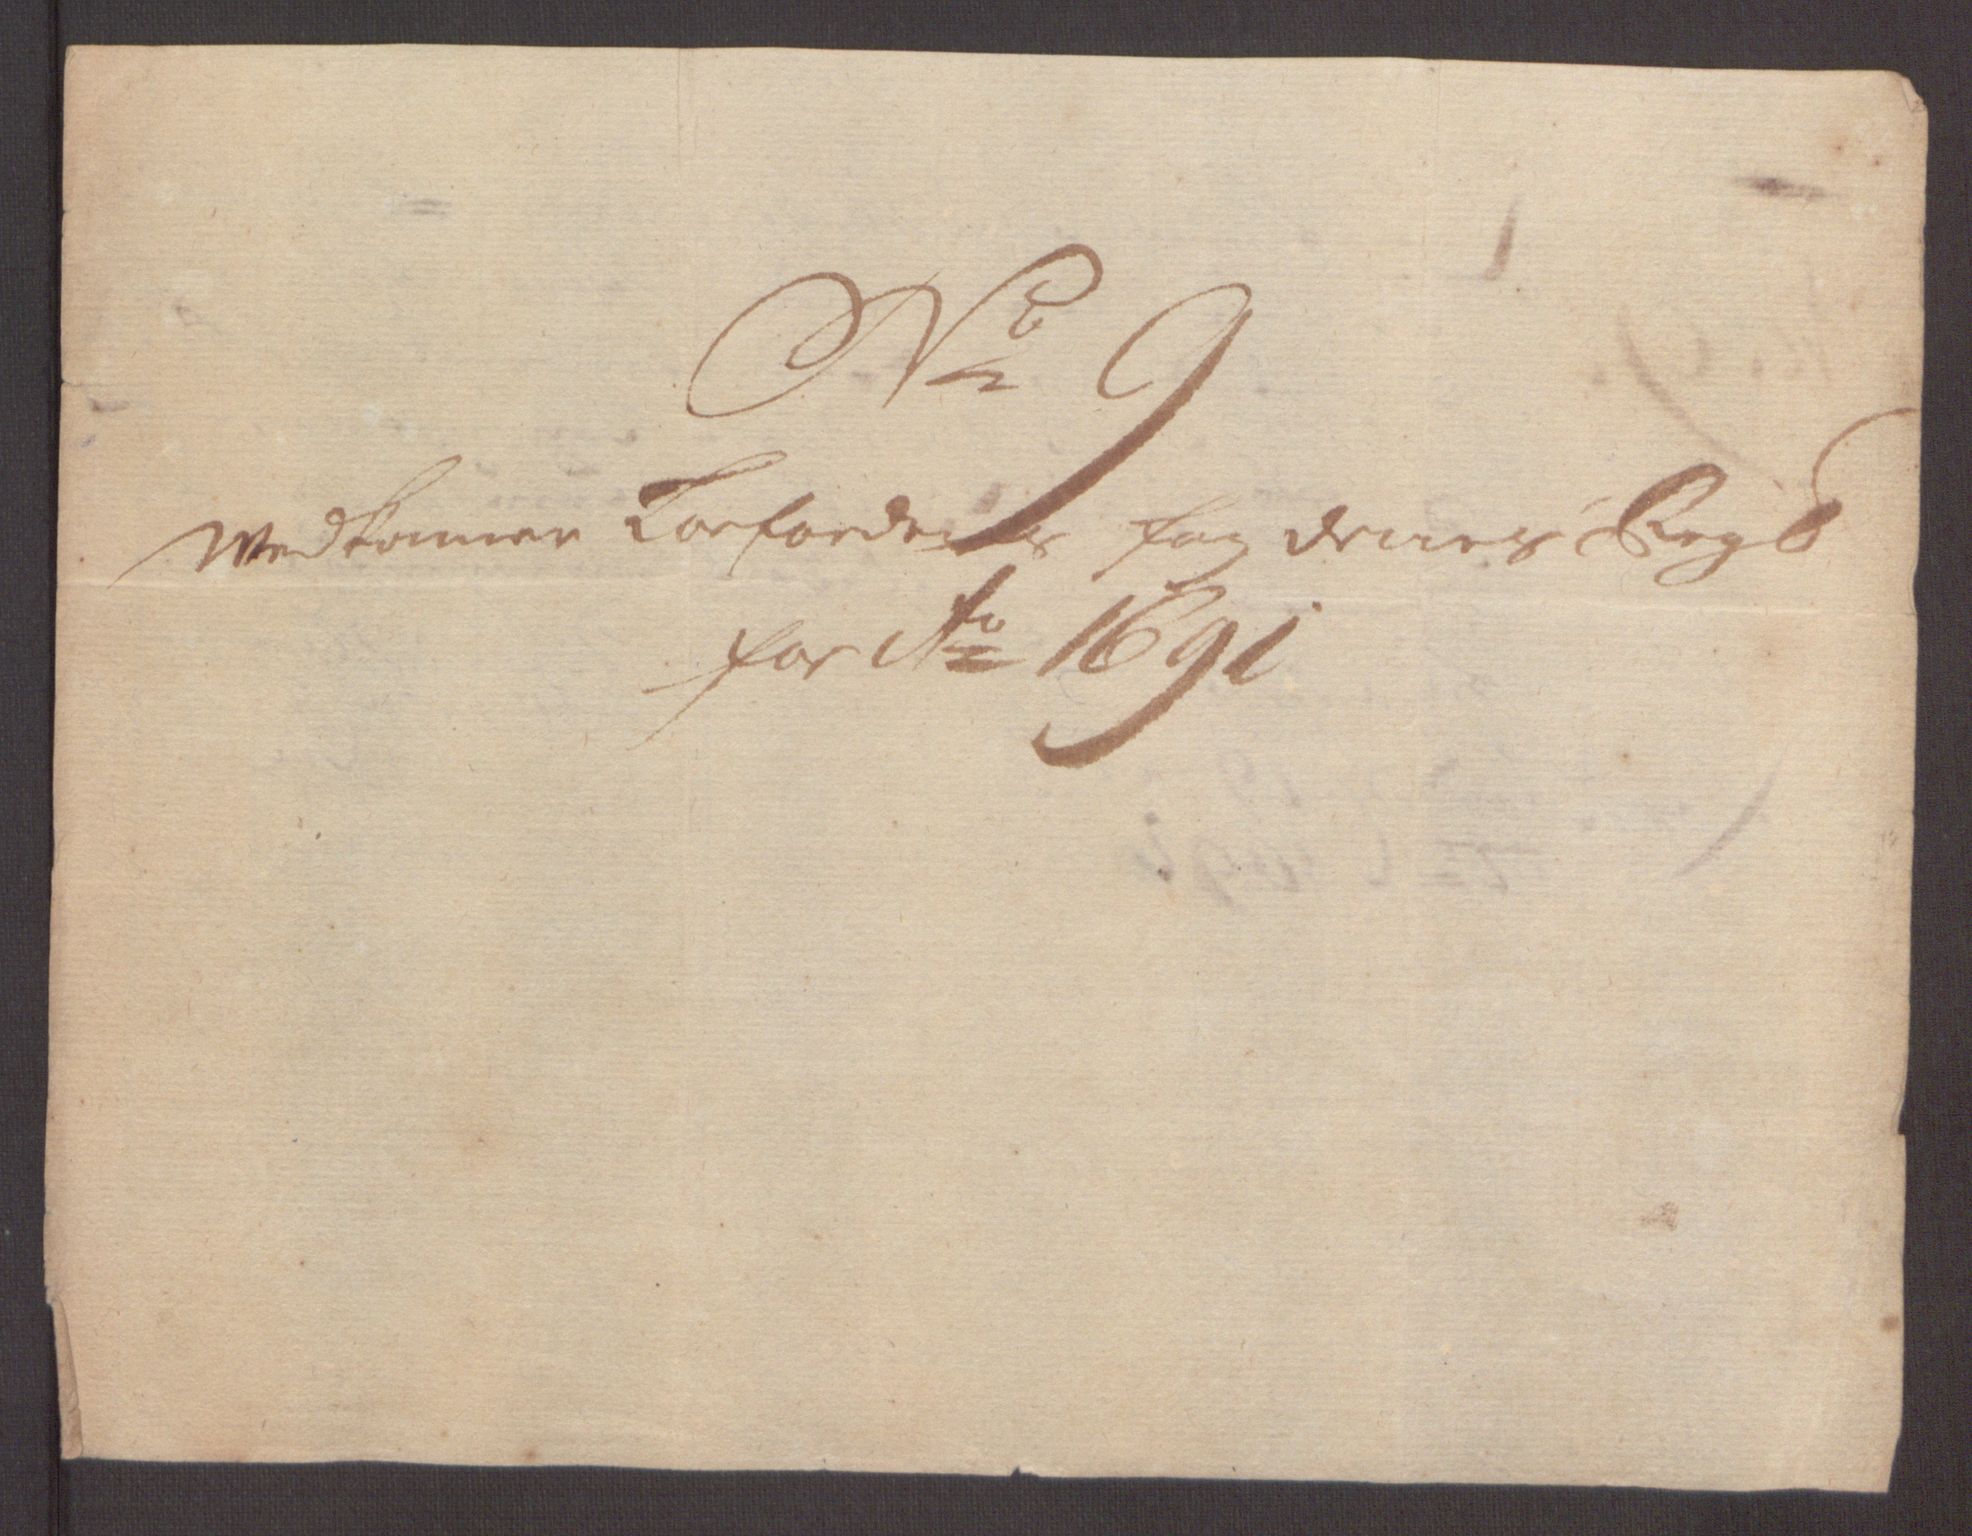 No 9
Wedkommer Torfordernis fog deries Regs
for Ao 1691